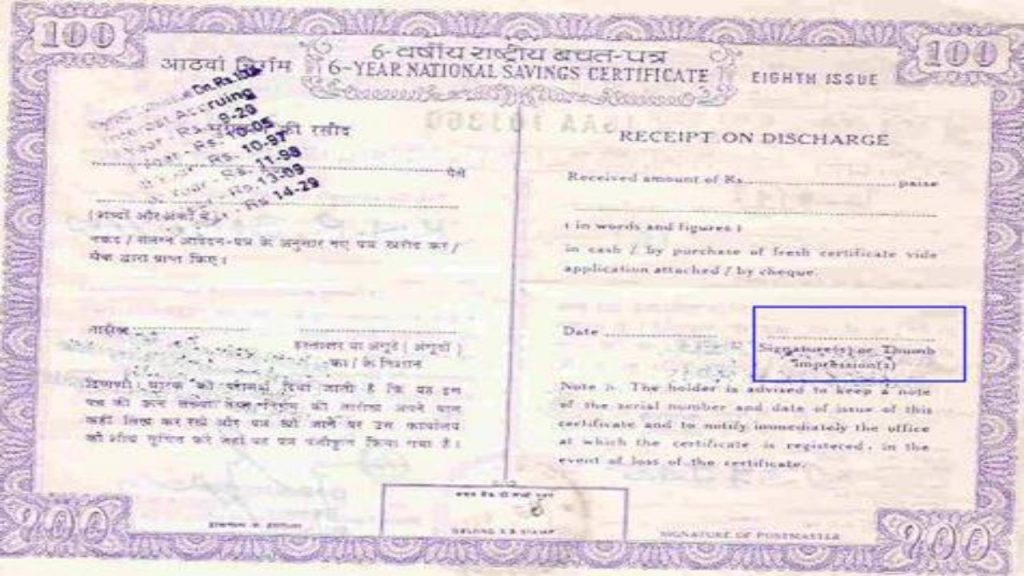 100
6-वर्षीय राष्ट्रीय बचत-पत्र
100
आठवां निर्गम
6-YEAR NATIONAL SAVINGS CERTIFICATE
EIGHTH ISSUE
On Rs. 100
Interest Accruing
Year - Rs. 9-20
Year - Rs. 10-05
Year - Rs. 10-97
Year - Rs. 11-98
Year - Rs. 13-09
Year - Rs 14-29
की रसीद
पैसे
(शब्दों और अंकों में)
नकद / संलग्न आवेदन-पत्र के अनुसार नए पत्र खरीद कर /
चैक द्वारा प्राप्त किए।
तारीख
हस्ताक्षर या अंगूठे (अंगूठों)
का / के निशान
टिप्पणी: धारक को परामर्श दिया जाता है कि वह इस
पत्र की क्रम संख्या तथा निर्गम की तारीख अपने पास
कहीं लिख कर रखे और पत्र खो जाने पर उस कार्यालय
को शीघ्र सूचित करे जहां यह पत्र पंजीकृत किया गया है।
RECEIPT ON DISCHARGE
Received amount of Rs. paise
( in words and figures )
in cash / by purchase of fresh certificate vide
application attached / by cheque.
Date
Signature(s) or Thumb
impression(s)
Note :- The holder is advised to keep a note
of the serial number and date of issue of this
certificate and to notify immediately the office
at which the certificate is registered, in the
event of loss of the certificate.
SIGNATURE OF POSTMASTER
100
100